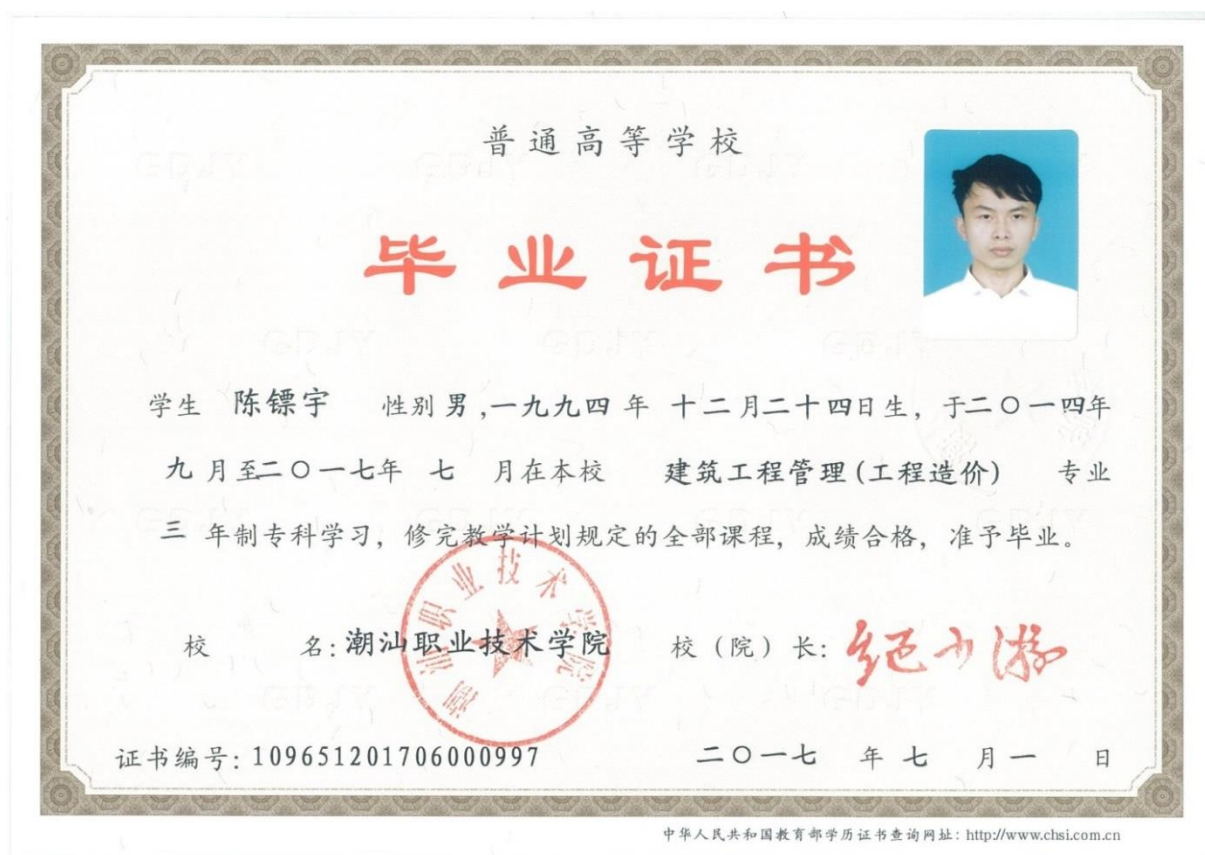 普通高等学校
毕业证书
学生 陈镖宇 性别 男，一九九四 年 十二 月 二十四 日生，于二〇一四年
九 月至二〇一七年 七 月在本校 建筑工程管理(工程造价) 专业
三 年制专科学习，修完教学计划规定的全部课程，成绩合格，准予毕业。
校 名：潮汕职业技术学院 校（院）长：纪少游
潮汕职业技术学院
证书编号：109651201706000997 二〇一七 年 七 月 一 日
中华人民共和国教育部学历证书查询网址：http://www.chsi.com.cn